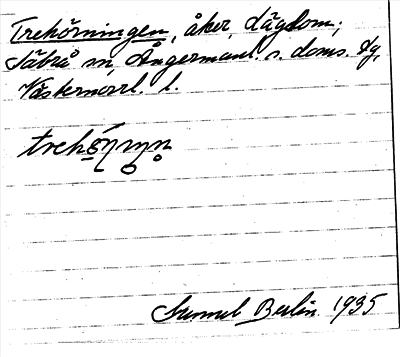 Trehörningen, åker, Dägdom;
Säbrå sn, Ångermanl. s. doms. dg,
Västernorrl. l.
Sunnel Berlin 1935